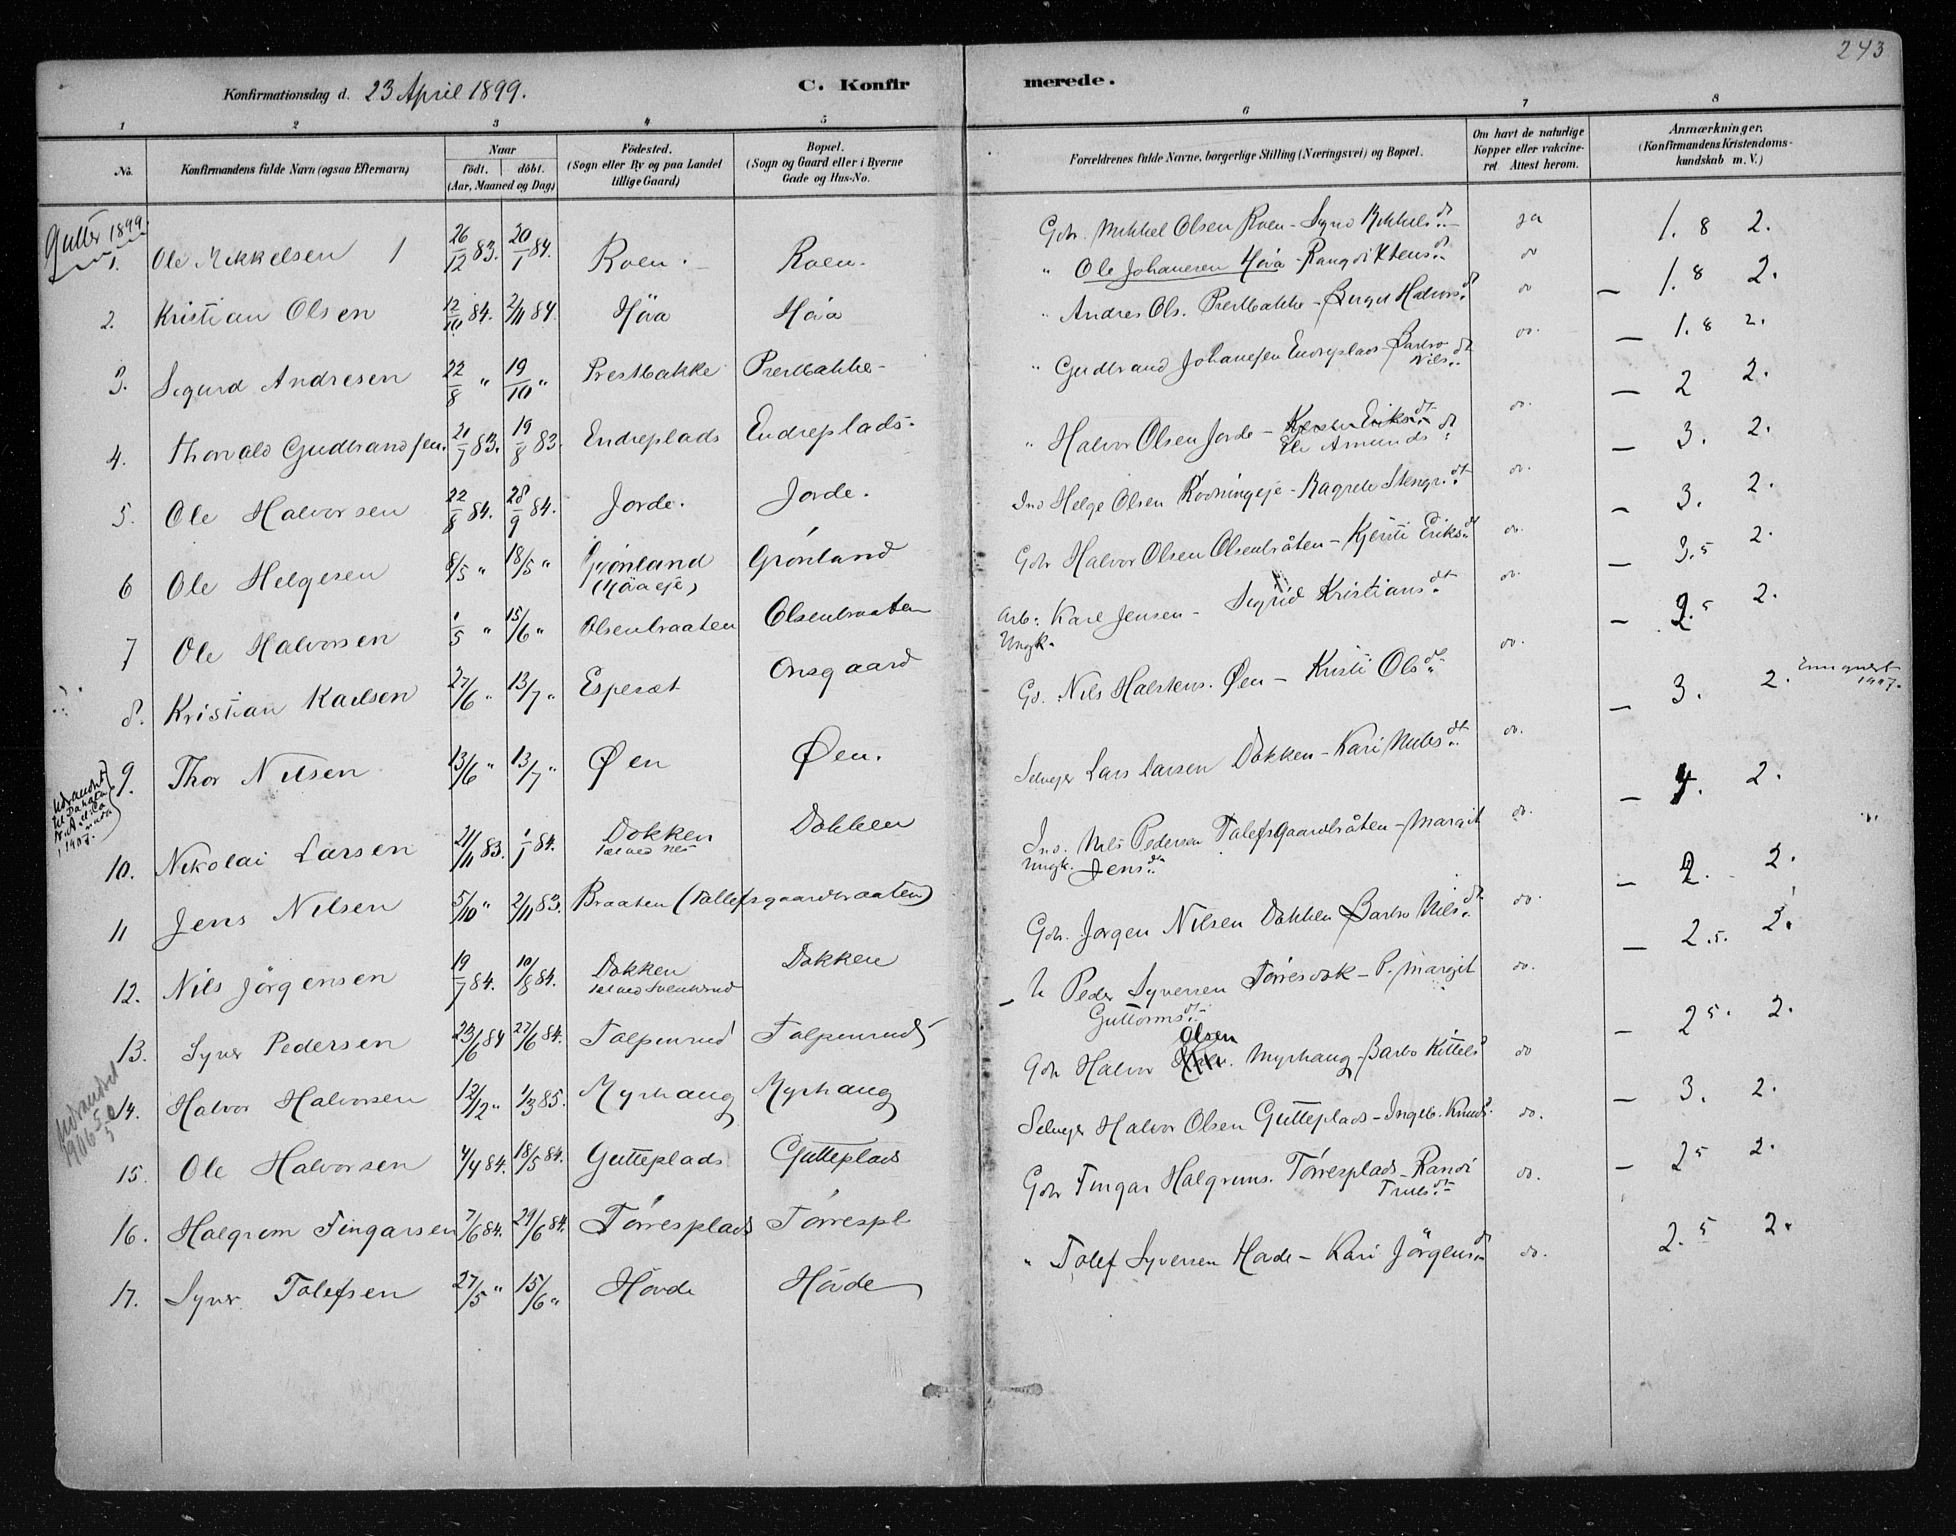 243
Konfirmationsdag d. 23 April 1899.
C. Konfirmerede.
1 2 3 4 5 6 7 8
No.
Konfirmandens fulde Navn (ogsaa Efternavn)
Naar
födt. döbt.
(Aar, Maaned og Dag)
Födested.
(Sogn eller By og paa Landet
tillige Gaard)
Bopæl.
(Sogn og Gaard eller i Byerne
Gade og Hus-No.
Forældrenes fulde Navne, borgerlige Stilling (Næringsvei) og Bopæl.
Om havt de naturlige
Kopper eller vakcine-
ret Attest herom.
Anmærkninger.
(Konfirmandens Kristendoms-
kundskab m. V.)
Gutter 1899.
1. Ole Mikkelsen 1 26/12 83. 20/1 84. Roen. Roen. Gbr. Mikkel Olsen Roen - ja 1.8 2.
2. Kristian Olsen 12/10 84. 2/11 84. Höva Höva " Ole Johannesen Höva - do 1.8 2.
3. Sigurd Andresen 22/8 " 19/10 " Prestbakke Prestbakke " Andres Ols. Prestbakke - Berget Halvors dt do 1.8 2.
4. Thorvald Gudbrandsen. 21/7 83. 19/8 83. Endreplads Endreplads. " Gudbrand Johanesen Endreplads - Barbro
Nils dt do. 2 2.
5. Ole Halvorsen 22/8 84. 28/9 84. Jorde. Jorde. " Halvor Olsen Jorde - Kjersti Eriks dt
Eli Amunds dt do. 3. 2.
6 Ole Helgesen 8/5 " 18/5 " Grönland
(Höva eje)
Grönland Ind Helge Olsen do. 3. 2.
7 Ole Halvorsen 1/5 " 15/6 " Olsenbraaten Olsenbraaten Gbr Halvor Olsen Olsenbråten - Kjersti Eriks dt do. 3.5 2.
8. Kristian Karlsen 27/6 " 13/7 " Espeset Onsgaard Arb: Karl Jensen - Sigrid Kristians dt
Ungk. do. 2.5 2.
9. Thor Nilsen 13/6 " 13/7 " Øen Øen. Gb. Nils Halstens. Øen - Kristi Ols dt do. 3. 2. 1907.
10. Nikolai Larsen 21/11 83. 1/1 84. Dokken Dokken Selvejer Lars Larsen Dokken - Kari Nils dt do. 4. 2.
11 Jens Nilsen 5/10 " 2/11 83. Braaten (Tollefsgaardbraaten) Ind. Nils Pedersen Tolefsgaardbråten - Margit
Ungk. Jens dt do. 2. 2.
12. Nils Jörgensen 19/7 84. 10/8 84. Dokken Dokken Gbr. Jorgen Nilsen Dokken Barbro Nils dt do. 2.5. 2.
13. Syver Pedersen 23/6 84 27/6 84. Tolpenrud Tolpenrud Peder Syversen - Margit
Guttorms dt do. 25. 2.
14. Halvor Halvorsen 12/12 " 1/3 85. Myrhaug Myrhaug Gbr Halvor Olsen Myrhaug - Barbro Kittels dt do 3. 2.
15. Ole Halvorsen 4/4 84. 18/5 84. Gutteplads Gutteplads Selvejer Halvor Olsen Gutteplads - Ingeb. Knuds. do. 25 2.
16. Halgrim Fingarsen 7/6 84. 29/6 84. Törresplads Törrespl Gbr Fingar Halgrims. Törresplads - Randi
Truls dt do. 2.5 2.
17. Syver Tolefsen 27/5 " 15/6 " Hövde Hövde " Tolef Syversen Hövde - Kari Jörgens dt do.
Udvandret
1906